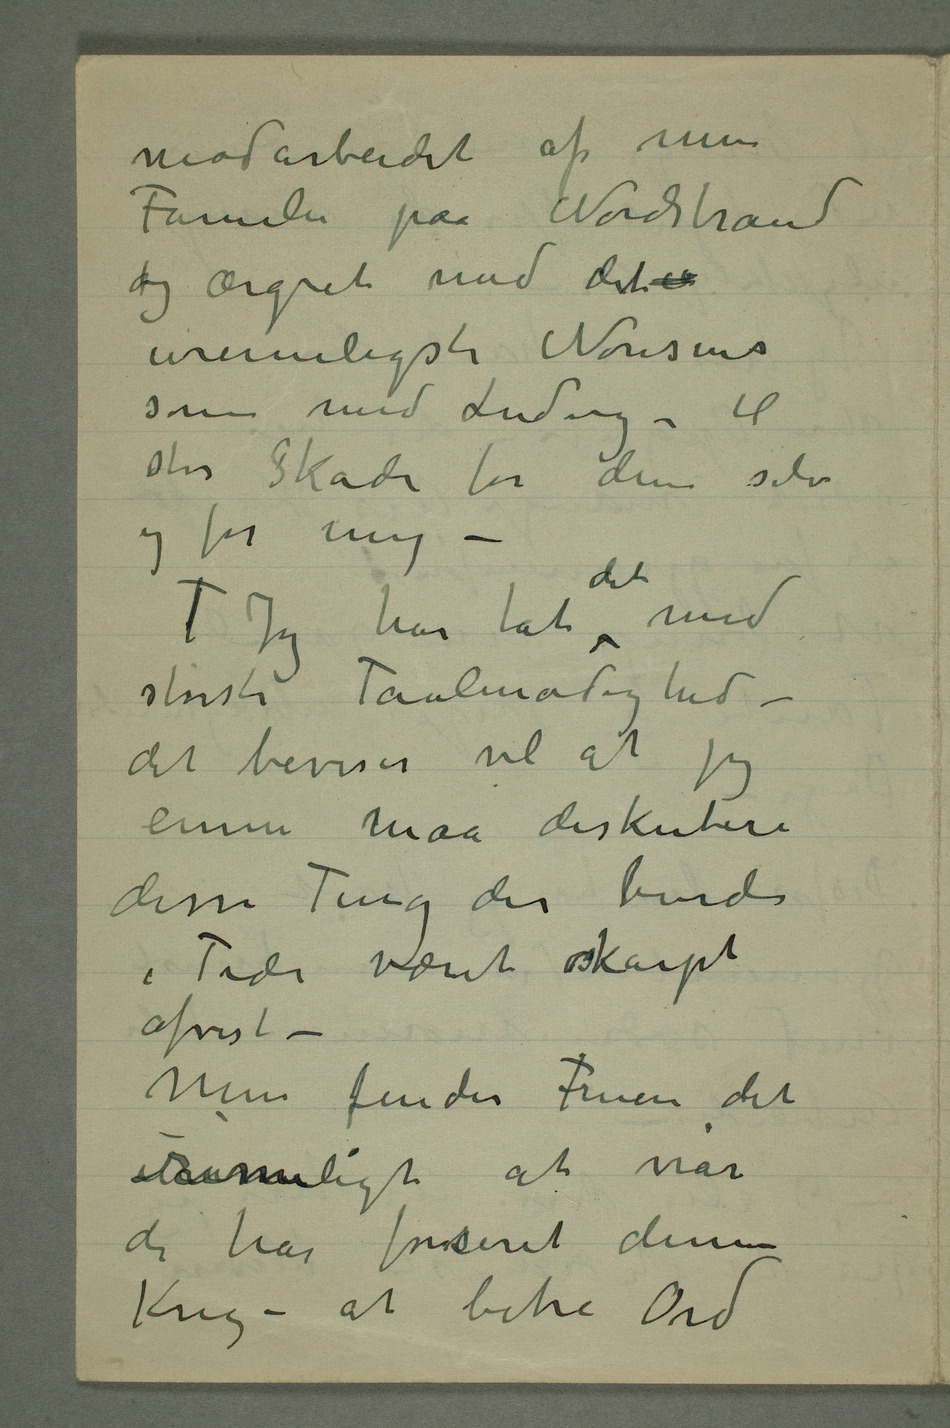 modarbeidet af min
Familie paa Nordstrand
og ærgret med det
urimeligste Nonsens
som med Ludvig – til
stor Skade for dem selv
og for mig –
T Jeg har tat det med
største Taalmodighed –
det beviser vel at jeg
ennu maa diskutere
disse Ting der burde
i Tide været skarpt
afvist –
Men finder Fruen det
rimeligt at når
de har forceret denne
Krig – at bitre Ord